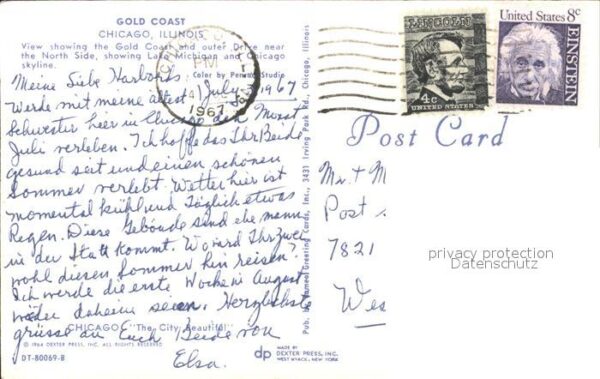 GOLD COAST
CHICAGO, ILLINOIS
View showing the Gold Coast and outer Drive near
the North Side, showing Lake Michigan and Chicago
skyline.
Color by Penrod Studio
Meine Liebe
4 July 1967
Werde mit meine älteste
Schwester hier in Chicago den Monat
Juli verleben. Ich hoffe das Ihr Beide
gesund seit und einen schönen
Sommer verlebt. Wetter hier ist
momental kühl und Täglich etwas
Regen. Diese Gebäude sind ehe mann
in der Statt kommt. Wo werd Ihr zwei
wohl diesen Sommer hin reisen?
Ich werde die erste Woche in August
wieder daheim seien. Herzlichste
grüsse an Euch Beide von
Elsa.
CHICAGO "The City Beautiful"
© 1964 DEXTER PRESS, INC. ALL RIGHTS RESERVED
DT-80069-B
dp
MADE BY
DEXTER PRESS, INC.
WEST NYACK, NEW YORK
Greeting Cards, Inc., 3431 Irving Park Rd., Chicago, Illinois
PM
1967
LINCOLN
4¢
UNITED STATES
United States 8c
EINSTEIN
Post Card
Mr + M
Post
7821
Wes
privacy protection
Datenschutz